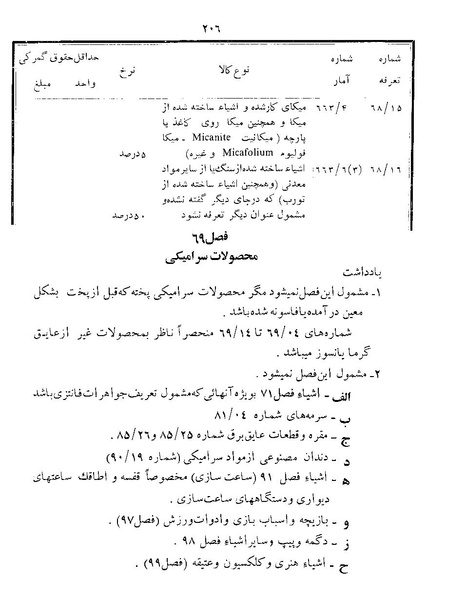 ۲۰۶
شماره شماره نوع کالا نرخ حداقل حقوق گمرکی
تعرفه آمار واحد مبلغ
۶۸/۱۵ ۶۶۳/۴ میکای کارشده و اشیاء ساخته شده از
میکا و همچنین میکا روی کاغذ یا
پارچه (میکانیت Micanite ـ میکا
فولیوم Micafolium و غیره) ۵درصد
۶۸/۱۶ ۶۶۳/۶(۳) اشیاء ساخته شده از سنگ یا از سایر مواد
معدنی (و همچنین اشیاء ساخته شده از
تورب) که درجای دیگر گفته نشده و
مشمول عنوان دیگر تعرفه نشود ۵۰درصد
فصل ۶۹
محصولات سرامیکی
یادداشت
۱ـ مشمول این فصل نمیشود مگر محصولات سرامیکی پخته که قبل از پخت بشکل
معین در آمده یا فاسونه شده باشد .
شماره‌های ۶۹/۰۴ تا ۶۹/۱۴ منحصراً ناظر بمحصولات غیر از عایق
گرما یا نسوز میباشد .
۲ـ مشمول این فصل نمیشود .
الف ـ اشیاء فصل ۷۱ بویژه آنهائی که مشمول تعریف جواهرات فانتزی باشد
ب ـ سرمه‌های شماره ۸۱/۰۴
ج ـ مقره و قطعات عایق برق شماره ۸۵/۲۵ و ۸۵/۲۶ .
د ـ دندان مصنوعی از مواد سرامیکی (شماره ۹۰/۱۹)
ه ـ اشیاء فصل ۹۱ (ساعت سازی) مخصوصاً قفسه و اطاقک ساعتهای
دیواری و دستگاههای ساعت‌سازی .
و ـ بازیچه و اسباب بازی و ادوات ورزش (فصل ۹۷) .
ز ـ دگمه و پیپ و سایر اشیاء فصل ۹۸ .
ح ـ اشیاء هنری و کلکسیون و عتیقه (فصل ۹۹) .